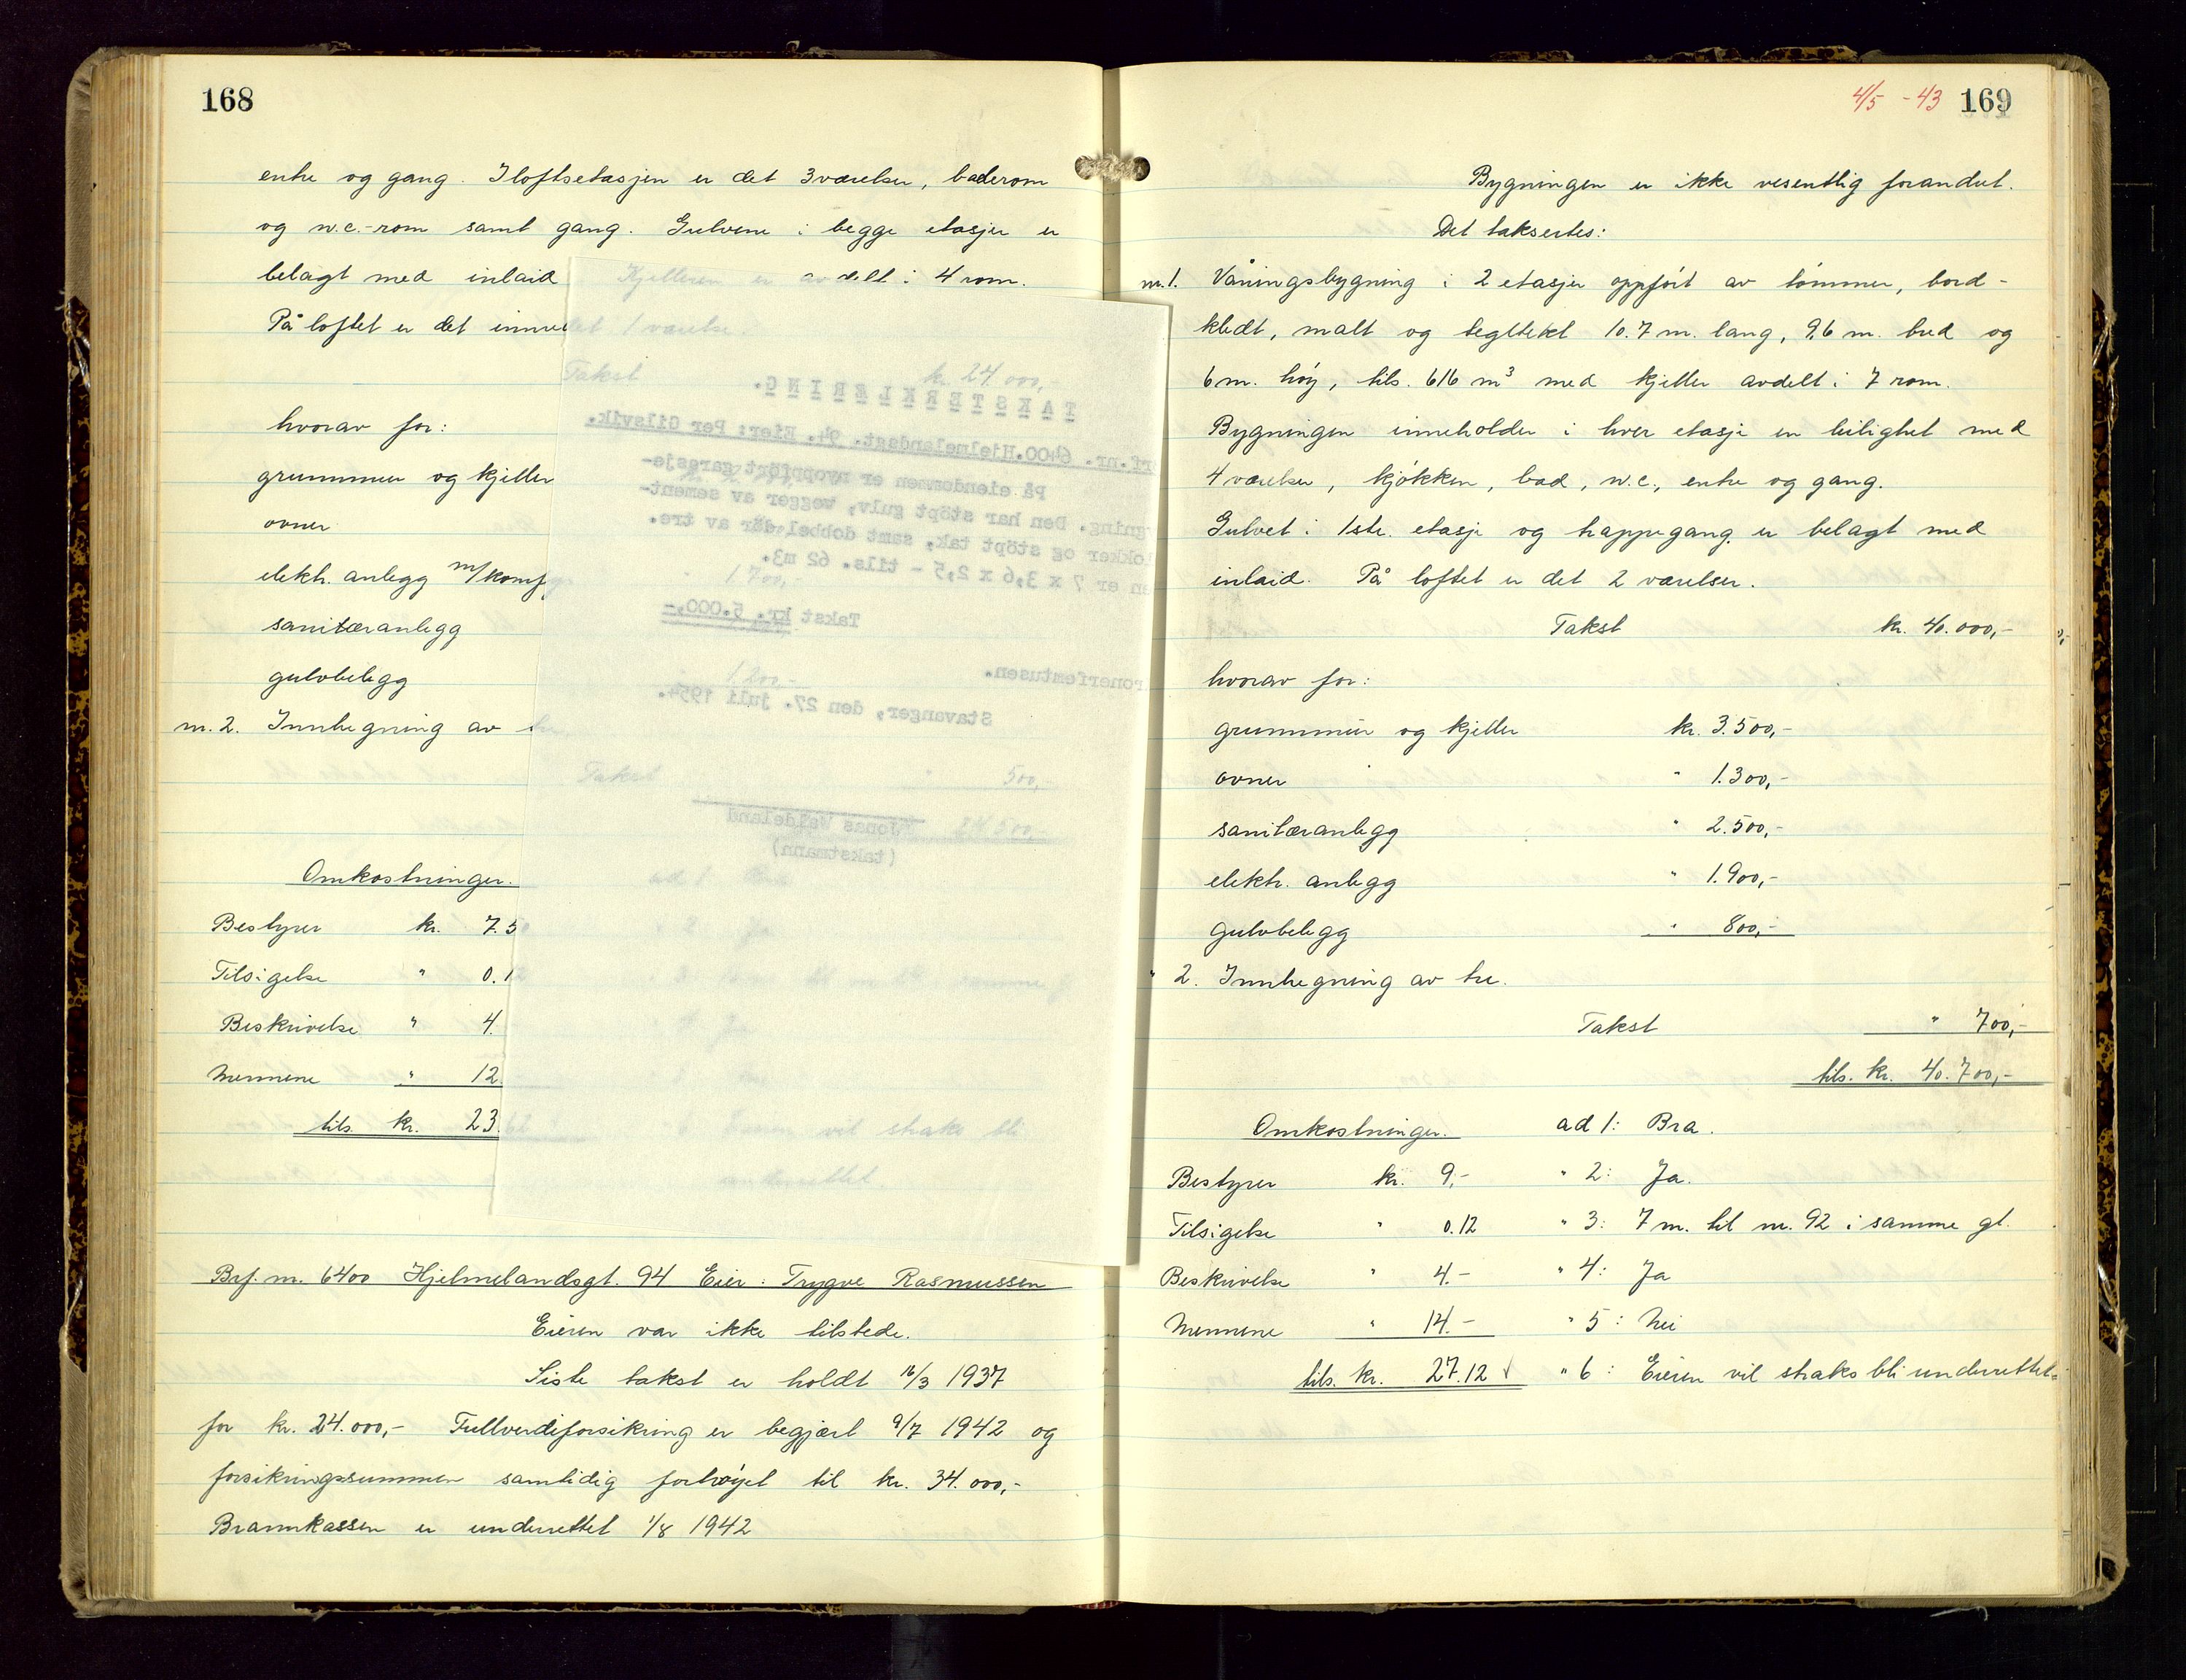 168
entre og gang. I loftsetasjen er det 3 værelser, baderom
og w.c.-rom samt gang. Gulvene i begge etasjer er
belagt med inlaid Kjelleren er avdelt i 4 rom.
På loftet er det innredet 1 værelse.
Takst kr. 24.000,-
hvorav for:
grunnmur og kjeller
ovner
elektr. anlegg m/komf
sanitæranlegg 1700,-
gulvbelegg 1200,-
nr. 2. Innhegning av
Takst " 500,-
24.500,-
Omkostninger. ad 1
Bestyrer kr. 7.50
Tilsigelse " 0.12
Beskrivelse " 4.
Mennene " 12.
tils. kr. 23.62
6 Eieren vil straks bli
underrettet.
TAKSTERKLÆRING.
rf.nr. 6400.Hjelmelandsgt. 94. Eier: Per Gilsvik.
På eiendommen er nyoppført garasje-
ygning. Den har støpt gulv, vegger av sement-
lokker og støpt tak, samt dobbel dør av tre.
en er 7 x 3,6 x 2,5 - tils. 62 m3.
Takst kr. 5.000,-
ronerfemtusen.
Stavanger, den 27. juli 1954.
Jonas Weideland
(takstmann)
Brf. nr. 6400 Hjelmelandsgt. 94 Eier: Trygve Rasmussen
Eieren var ikke tilstede.
Siste takst er holdt 16/3 1937
for kr. 24.000,- Fullverdiforsikring er begjært 9/7 1942 og
forsikringssummen samtidig forhøyet til kr. 34.000,-
Brannkassen er underrettet 1/8 1942
4/5 -43 169
Bygningen er ikke vesentlig forandret.
Det taksertes:
nr. 1. Våningsbygning i 2 etasjer oppført av tømmer, bord-
kledt, malt og tegltekt 10.7 m. lang, 9,6 m. bred og
6 m. høy, tils. 616 m³ med kjeller avdelt i 7 rom.
Bygningen inneholder i hver etasje en leilighet med
4 værelser, kjøkken, bad, w.c., entre og gang.
Gulvet i 1ste. etasje og trappegang er belagt med
inlaid. På loftet er det 2 værelser.
Takst kr. 40.000,-
hvorav for:
grunnmur og kjeller kr. 3.500,-
ovner " 1.300,-
sanitæranlegg " 2.500,-
elektr. anlegg " 1.900,-
gulvbelegg " 800,-
" 2. Innhegning av tre.
Takst " 700,-
tils. kr. 40.700,-
Omkostninger. ad 1: Bra.
Bestyrer kr. 9,- " 2: Ja.
Tilsigelse " 0.12 " 3: 7 m. til nr. 92 i samme gt.
Beskrivelse " 4.- " 4: Ja
Mennene " 14.- " 5: Nei
tils. kr. 27.12 " 6: Eieren vil straks bli underrettet.